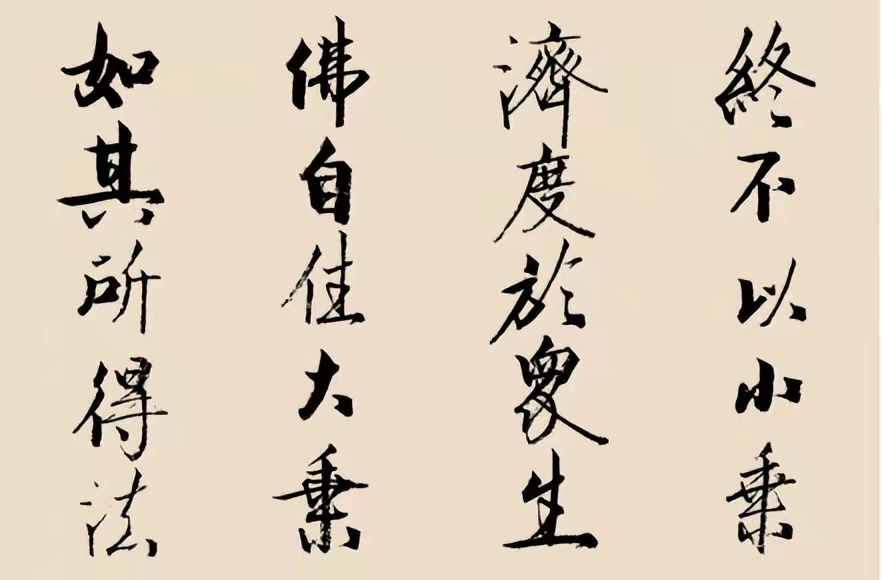 終不以小乗
濟度於衆生
佛自住大乗
如其所得法